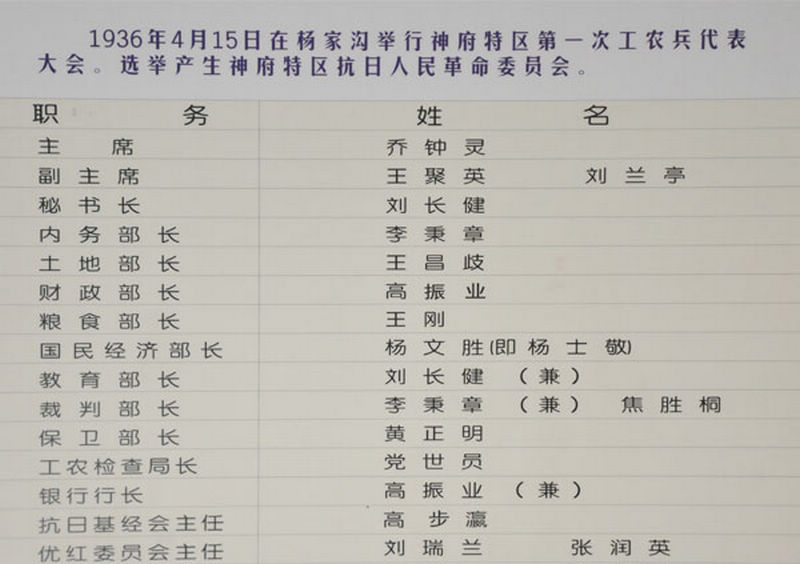 1936年4月15日在杨家沟举行神府特区第一次工农兵代表
大会。选举产生神府特区抗日人民革命委员会。
职 务 姓 名
主 席 乔钟灵
副主席 王聚英 刘兰亭
秘书长 刘长健
内务部长 李秉章
土地部长 王昌歧
财政部长 高振业
粮食部长 王刚
国民经济部长 杨文胜(即杨士敬)
教育部长 刘长健(兼)
裁判部长 李秉章(兼) 焦胜桐
保卫部长 黄正明
工农检查局长 党世员
银行行长 高振业(兼)
抗日基经会主任 高步瀛
优红委员会主任 刘瑞兰 张润英